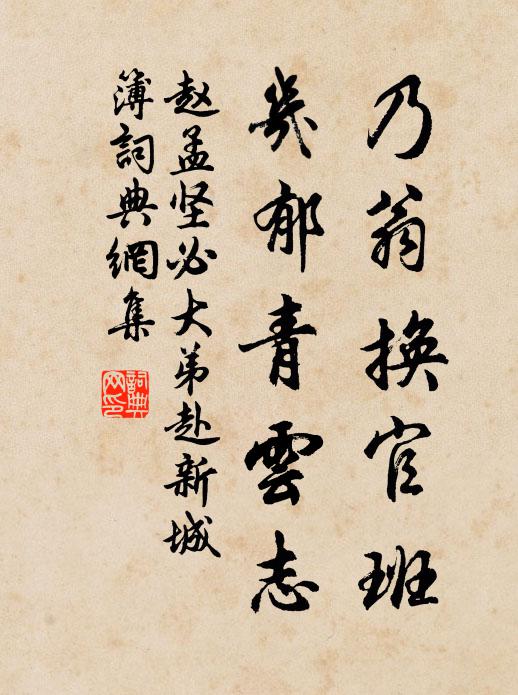 乃翁换官班
几郁青雲志
赵孟坚必大弟赴新城
簿詞典網集
詞典網印